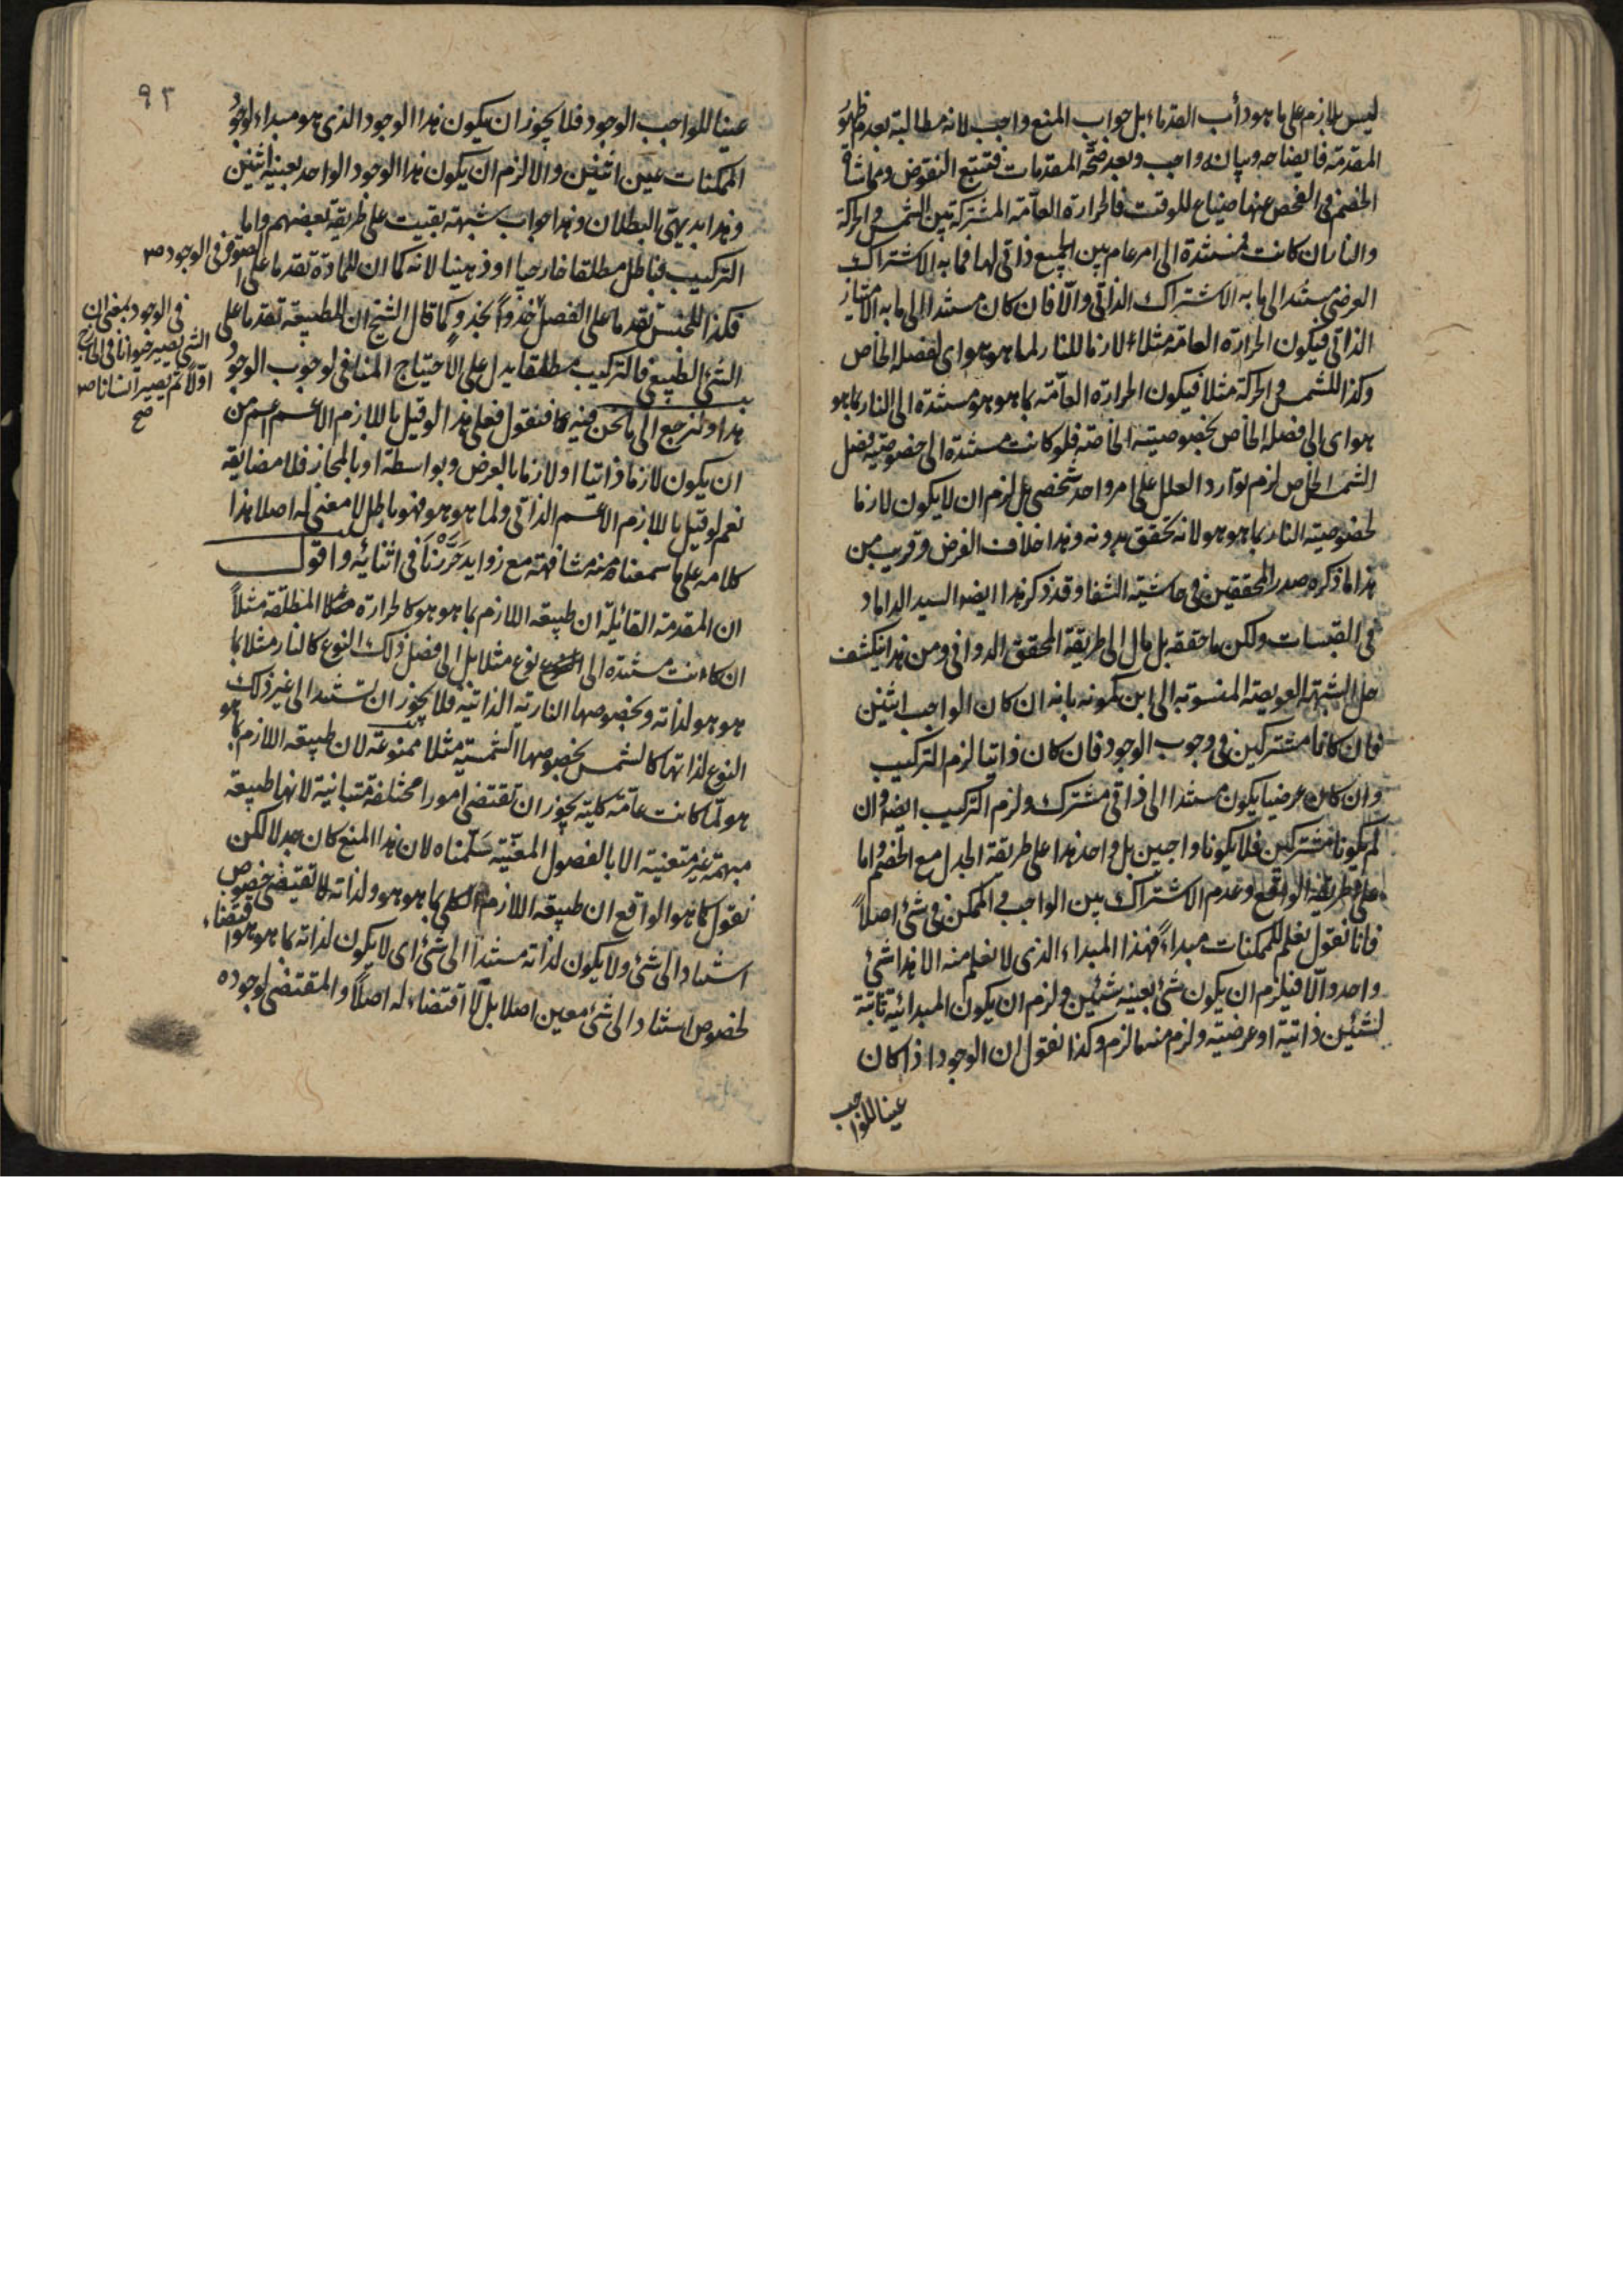 ليس بلازم على ما هو دأب القدماء بل جواب المنع واجب لانه مطالبة بعدم ظهور
المقدمة فايضاحه وبيانه واجب وبعد صحة المقدمات فتتبع النقوض ومماشاة
الخصم فى الفحص عنها ضياع للوقت فالحرارة العامة المشتركة بين الشمس والحركة
والنار ان كانت مستندة الى امر عام بين الجميع ذاتى لها فما به الاشتراك
العرضى مستند الى ما به الاشتراك الذاتى والّا فان كان مستندا الى ما به الامتياز
الذاتى فيكون الحرارة العامة مثلا لازما للنار لما هو هو اى لفصله الخاص
وكذا للشمس والحركة مثلا فيكون الحرارة العامّة بما هو هو مستندة الى النار بما هو
هو اى الى فصله الخاص بخصوصيته الخاصة فلو كانت مستندة الى خصوصية فصل
الشمس الخاص لزم توارد العلل على امر واحد شخصى بل لزم ان لا يكون لازما
لخصوصية النار بما هو هو لانه تحقق بدونه وهذا خلاف الفرض وقريب من
هذا ما ذكره صدر المحققين فى حاشية الشفا وقد ذكر هذا ايضا السيد الداماد
فى القبسات ولكن ما حققه بل مال الى طريقة المحقق الدوانى ومن هذا ينكشف
حل الشبهة العويصة المنسوبة الى ابن كمونه بانه ان كان الواجب اثنين
فان كانا مشتركين فى وجوب الوجود فان كان ذاتيا لزم التركيب
وان كان عرضيا يكون مستندا الى ذاتى مشترك ولزم التركيب ايضا وان
لم يكونا مشتركين فلا يكونا واجبين بل واحد هذا على طريقة الجدل مع الخصم واما
على طريقة الواقع وعدم الاشتراك بين الواجب والممكن فى شئ اصلاً
فانا نقول نعلم للممكنات مبداء فهذا المبداء الذى لا نعلم منه الا هذا شئ
واحد والّا فيلزم ان يكون شئ بعينه شيئين ولزم ان يكون المبدائية ثابتة
لشيئين ذاتية او عرضية ولزم منه ما لزم وكذا نقول ان الوجود اذا كان
عينا للواجب
٩٢
عينا للواجب الوجود فلا يجوز ان يكون هذا الوجود الذى هو مبداء لوجود
الممكنات عين اثنين والا لزم ان يكون هذا الوجود الواحد بعينه اثنين
وهذا بديهى البطلان وهذا جواب شبهة بقيت على طريقة بعضهم واما
التركيب فباطل مطلقا خارجيا او ذهنيا لانه كما ان للمادة تقدما على الصورة فى الوجود
فكذا للجنس تقدما على الفصل حذواً بحذو كما قال الشيخ ان للطبيعة تقدما على
الشئ الطبيعى فالتركيب مطلقا يدل على الاحتياج المنافى لوجوب الوجود
هذا ولنرجع الى ما نحن فيه كما فنقول فعلى هذا لو قيل باللازم الاعم اعم من
ان يكون لازما ذاتيا او لازما بالعرض وبواسطة او بالمجاز فلا مضايقة
نعم لو قيل باللازم الاعم الذاتى ولما هو هو فهو باطل لا معنى له اصلا هذا
كلامه على ما سمعناه منه مشافهة مع زوايد حَرَّرْنَا فى اثنائه واقول
ان المقدمة القائلة ان طبيعة اللازم بما هو هو كالحرارة المطلقة مثلاً
ان كانت مستندة الى نوع مثلا بل الى فصل ذلك النوع كالنار مثلا بما
هو هو لذاته وبخصوصها النارية الذاتية فلا يجوز ان تستند الى غير ذلك
النوع لذاتها كالشمس بخصوصها الشمسية مثلا ممنوعة لان طبيعة اللازم بما هو
هو لمّا كانت عامّة كلية يجوز ان تقتضى امورا مختلفة متباينة لانها طبيعة
مبهمة غير متعينة الا بالفصول المعيّنة سَلّمناه لان هذا المنع كان جدلا لكن
نقول كما هو الواقع ان طبيعة اللازم الكلى بما هو هو ولذاته لا تقتضى خصوص
استناد الى شئ ولا يكون لذاته مستندا الى شئ اى لا يكون لذاته بما هو هو اقتضاء
لخصوص استناد الى شئ معين اصلا بل لا اقتضاء له اصلاً والمقتضى لوجوده
فى الوجود بمعنى ان
الشئ يصير حيوانا فى الخارج
اولاً ثم يصير انسانا
صح